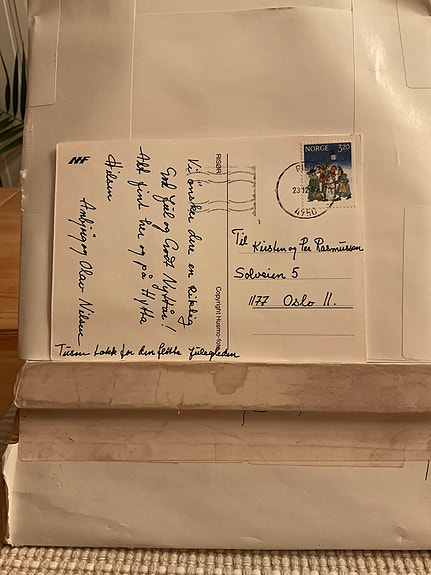 NORGE 3.20
23.12
4950
RISØR
Copyright Husmo-foto
Vi ønsker dere en Riktig
God Jul og Godt Nyttår!
Alt fint her og på Hytta
Hilsen
og Olav Nilsen
Tusen takk for den flotte juleglede
Til Kirsten og Per Rasmussen
Solveien 5
1177 Oslo 11.